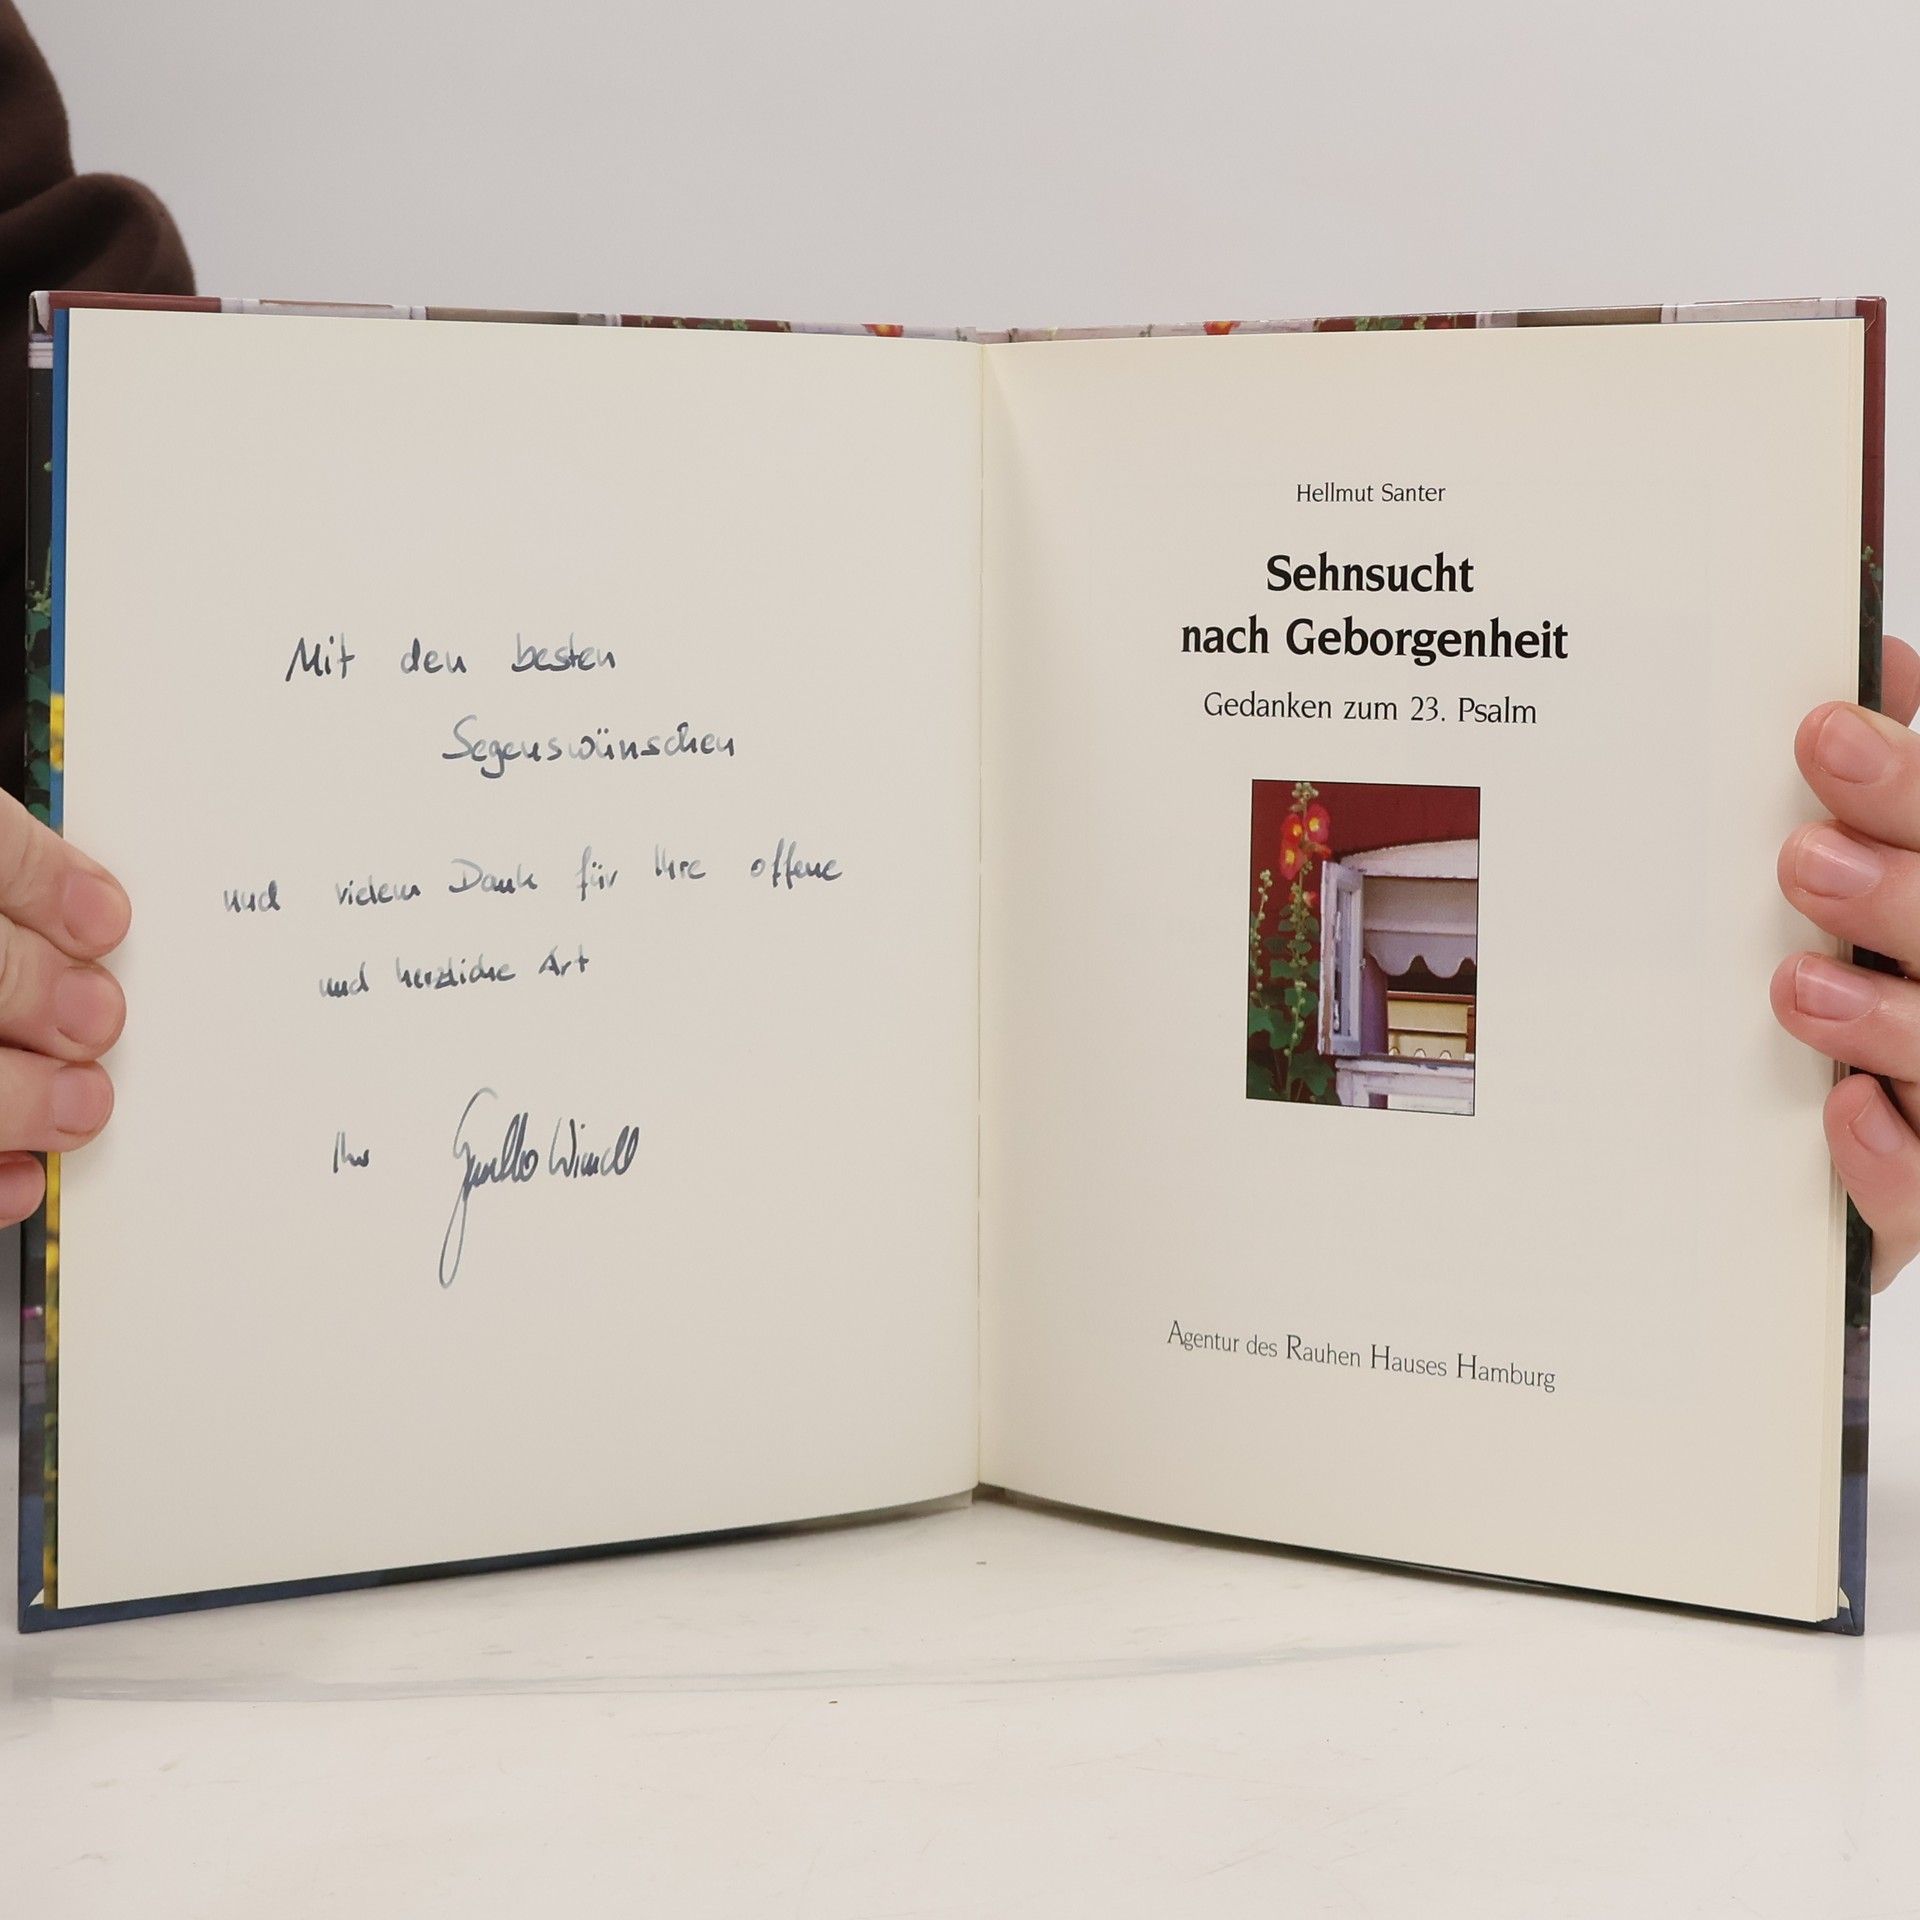 Mit den besten
Segenswünschen
und vielem Dank für Ihre offene
und herzliche Art
Ihr
Hellmut Santer
Sehnsucht
nach Geborgenheit
Gedanken zum 23. Psalm
Agentur des Rauhen Hauses Hamburg